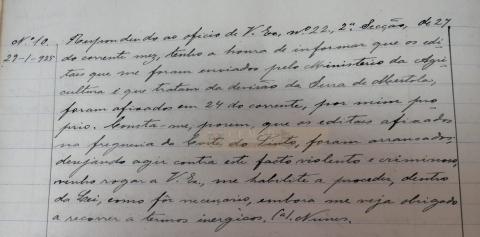 Nº 10. Respondendo ao oficio de V. Exa, nº 22, 2ª Secção, de 27
29-1-925 do corrente mez, tenho a honra de informar que os edi-
tais que me foram enviados pelo Ministerio da Agri-
cultura e que tratam da devisão da Serra de Mertola,
foram afixados em 24 do corrente, por mim pro-
prio. Consta-me, porem, que os editais afixados
na freguesia do Corte do Pinto, foram arrancados;
desejando agir contra este facto violento e criminoso,
venho rogar a V. Exa., me habilite a proceder, dentro
da Lei, como fôr necesario, embora me veja obrigado
a recorrer a termos inérgicos. (a). Nunes.